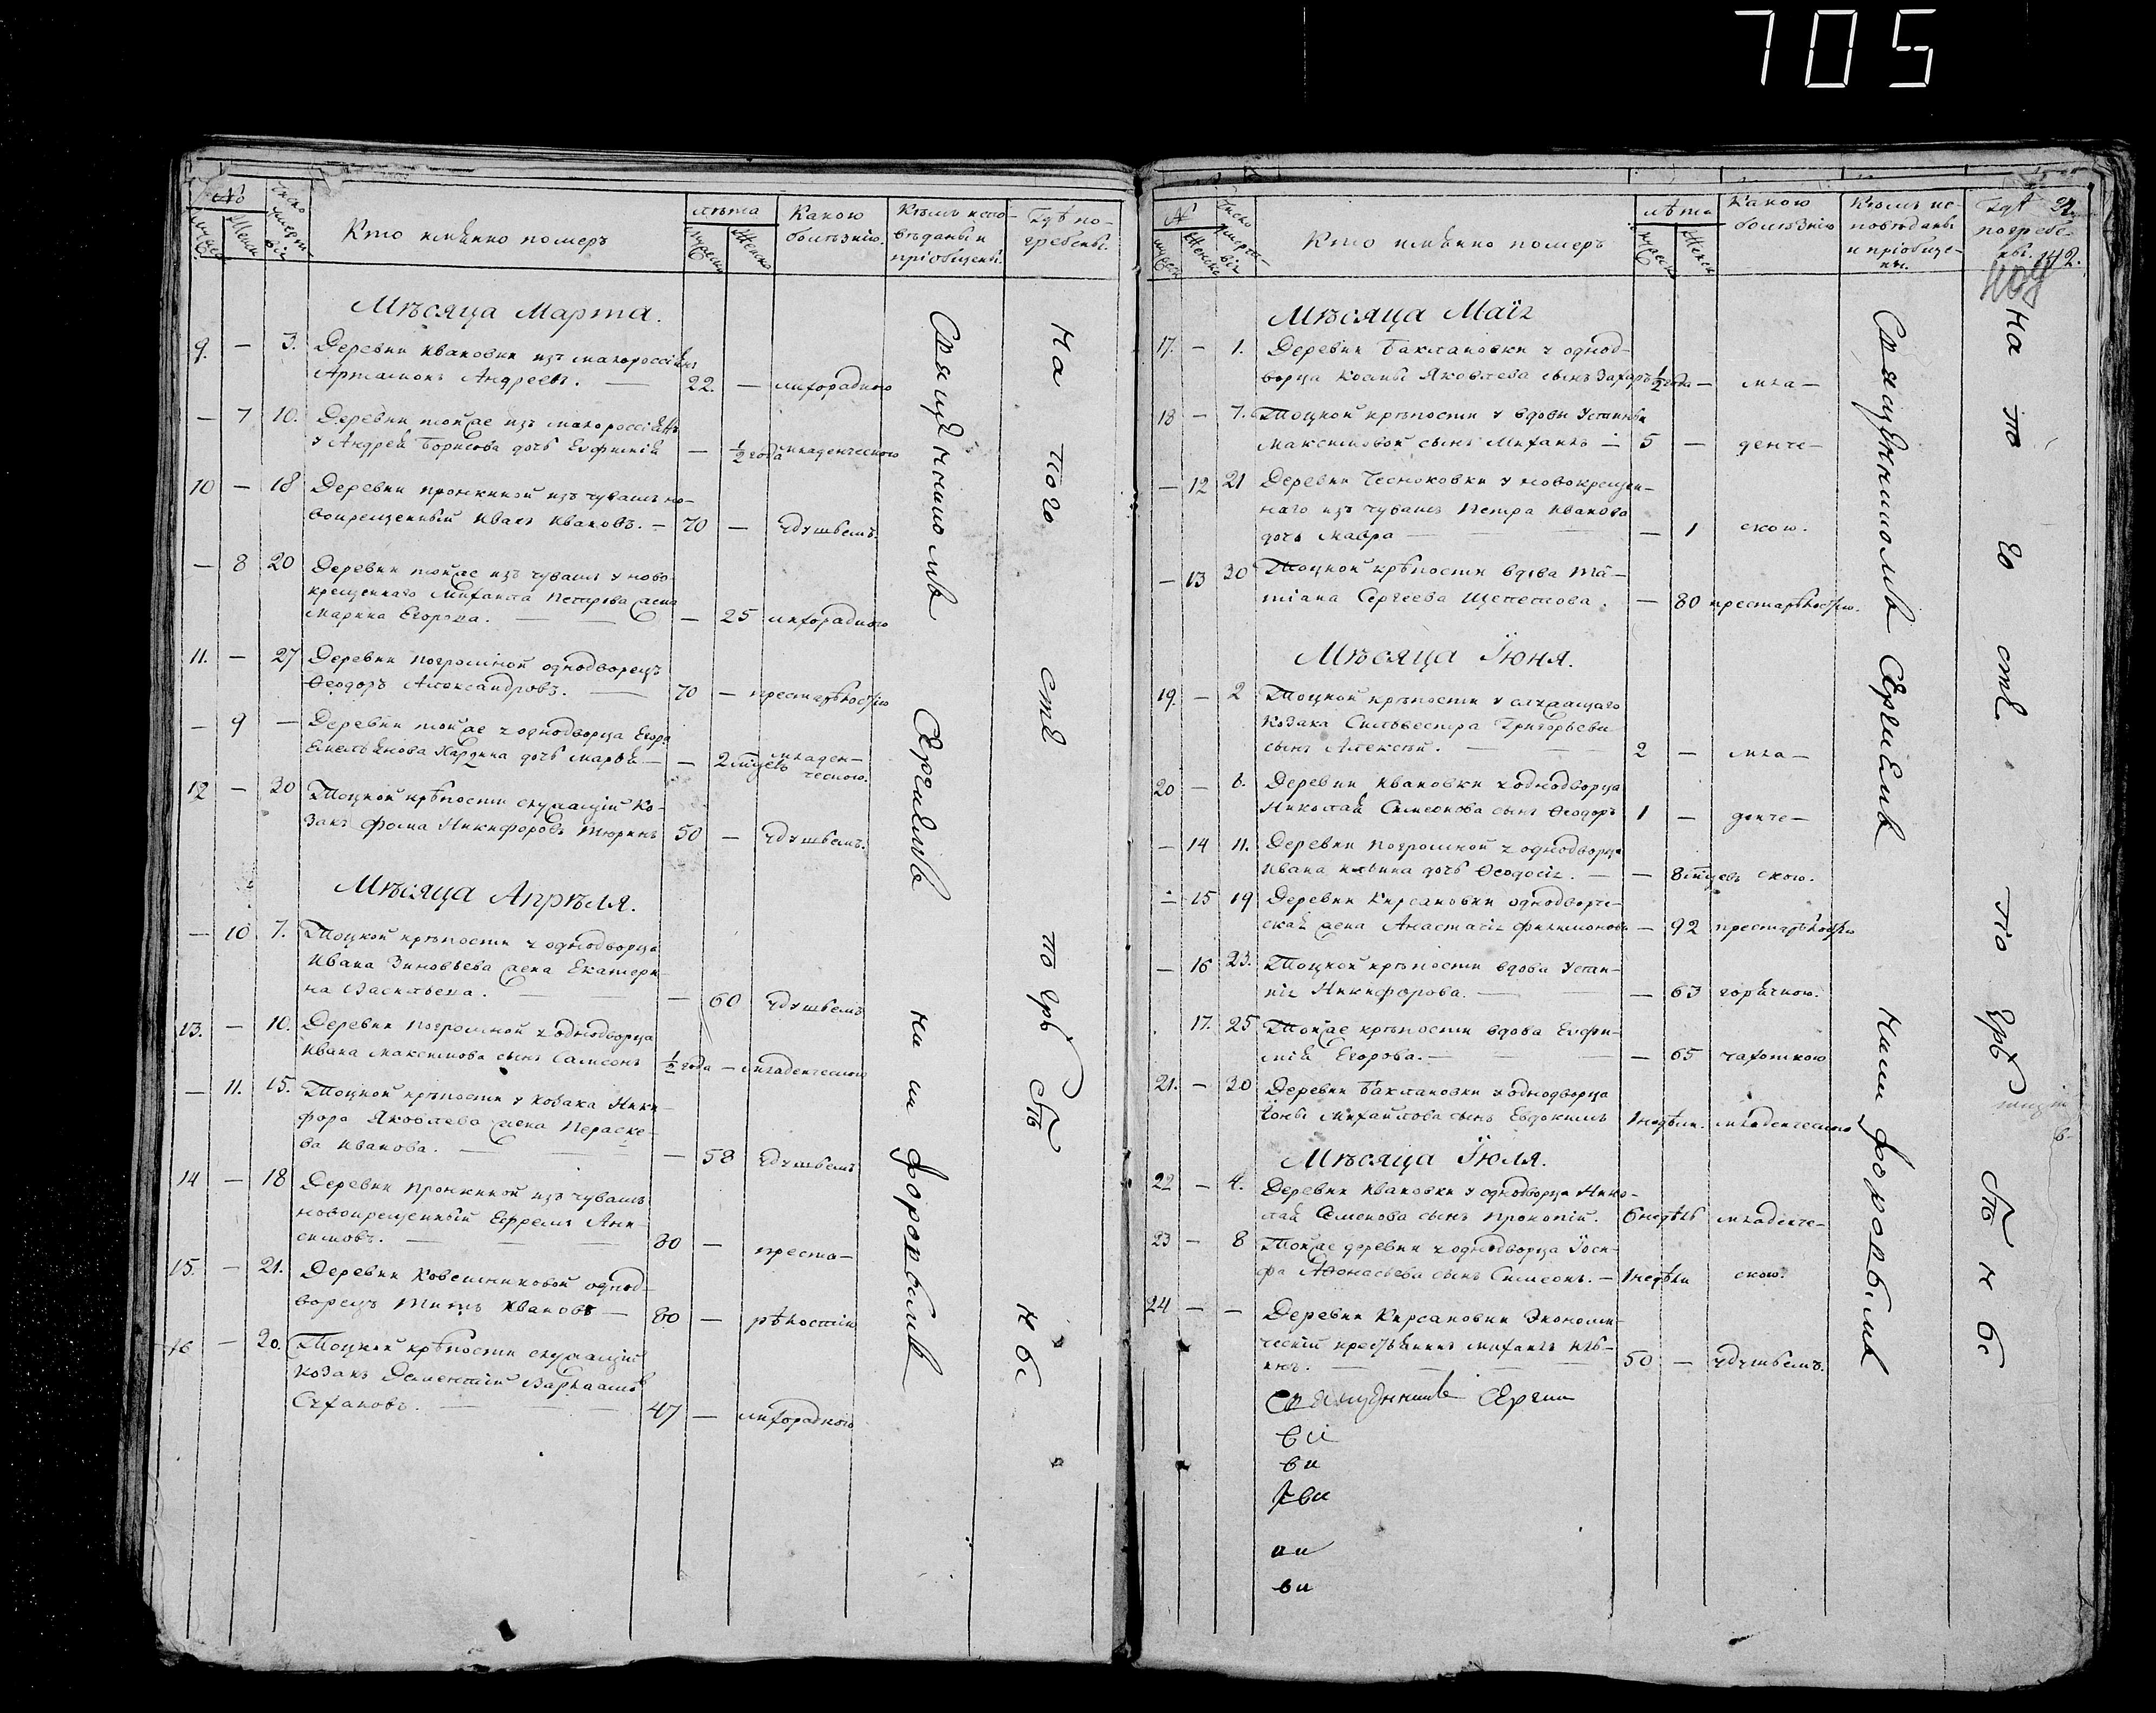 705
№
мужеск
Женск
Число смертвіи
Кто имянно померъ
лѣта
мужеска
Женска
Какою болѣзнію.
Кѣмъ исповѣданы и пріобщены.
Гдѣ погребены.
Мѣсяца Марта.
9. — 3. Деревни Ивановки изъ малороссіянъ
Артамонъ Андреевъ. — 22. — лихорадкою
— 7 10. Деревни тойже изъ малороссіянъ
у Андрея Борисова дочь Евфимія — ½ года младенческою
10 — 18 Деревни пронкиной изъ чувашъ но-
вокрещенный Иванъ Ивановъ. — 70 — удушьемъ.
— 8 20 Деревни тойже изъ чувашъ у ново-
крещеннаго Михаила Петрова жена
Марина Егорова. — — 25 лихорадкою
11. — 27 Деревни погромной однодворецъ
Ѳеодоръ Александровъ. — 70 — престарѣлостію
— 9 — Деревни тойже у однодворца Егора
Емельянова дочь Марья — — 2 мцевъ младен-
ческою.
12 — 30 Тоцкой крѣпости служащій Ко-
закъ Фома Никифоровъ Тюринъ 50 — удушьемъ.
Мѣсяца Апрѣля.
— 10 7. Тоцкой крѣпости у однодворца
Ивана Зиновьева жена Екатери-
на Васильева. — — 60 удушьемъ
13. — 10. Деревни Погромной у однодворца
Ивана Максимова сынъ Самсонъ ½ года — младенческою
— 11. 15. Тоцкой крѣпости у Козака Ники-
фора Яковлева жена Параске-
ва Иванова. — — 58 удушьемъ
14 — 18 Деревни Пронкиной изъ чувашъ
новокрещенный Ефремъ Ани-
симовъ. — 80 — преста-
15. — 21. Деревни Ковешниковой однод-
ворецъ Титъ Ивановъ — 80 — рѣлостію
16 — 30. Тоцкой крѣпости служащій
Козакъ Дементій Варлаамовъ
47 — лихорадкою
Священникомъ Сергиемъ Никифоровымъ
На того стѣ по грѣ бѣ н ы
№
мужеск
Женска
Число смертвіи
Кто имянно померъ
лѣта
мужеск
Женск
Какою болѣзнію
Кѣмъ исповѣданы и пріобщены.
Гдѣ погребены.
142.
Мѣсяца Маіа
17. — 1. Деревни Баклановки у однод-
ворца Космы Яковлева сынъ Захаръ ½ года — мла—
18 — 7. Тоцкой крѣпости у вдовы Устиньи
Максимовой сынъ Михаилъ — 5 — денче—
— 12 21 Деревни Чесноковки у новокрещен-
наго изъ чувашъ Петра Иванова
дочь Мавра — — 1 скою.
— 13 30 Тоцкой крѣпости вдова Та-
тіана Сергеева Щепетова. — 80 престарѣлостію.
Мѣсяца Іюня.
19. — 2 Тоцкой крѣпости у служащаго
Козака Сильвестра Григорьева
сынъ Алексѣй. — 2 — мла—
20 — 6. Деревни Ивановки у однодворца
Николая Симеонова сынъ Ѳеодоръ 1 — денче—
— 14 11. Деревни погромной у однодворца
Ивана Ильина дочь Ѳеодосіа. — — 8 мцевъ скою.
— 15 19 Деревни Кирсановки однодворче-
ская жена Анастасіа Филимонова — 92 престарѣлостію
— 16 23. Тоцкой крѣпости вдова Устин-
ніа Никифорова. — — 63 горячкою.
17. 25 Тойже крѣпости вдова Евфи-
мія Егорова. — — 65 чахоткою
21. — 30 Деревни Баклановки у однодворца
Іоны Михайлова сынъ Евдокимъ 1 недѣли. младенческою
Мѣсяца Іюля.
22 — 4. Деревни Ивановки у однодворца Нико-
лая Семенова сынъ Прокопій. 6 недѣль младенче-
23 — 8 Тойже деревни у однодворца Іоси-
фа Аѳонасьева сынъ Симеонъ. — 1 недѣли скою.
24 — — Деревни Кирсановки Экономи-
ческій крестьянинъ Михаилъ Иль-
инъ. — 50 — удушьемъ.
Священникъ Сергии
ви
ви
ви
Священникомъ Сергиемъ Никифоровымъ
На то го стѣ по грѣ бѣ н ы